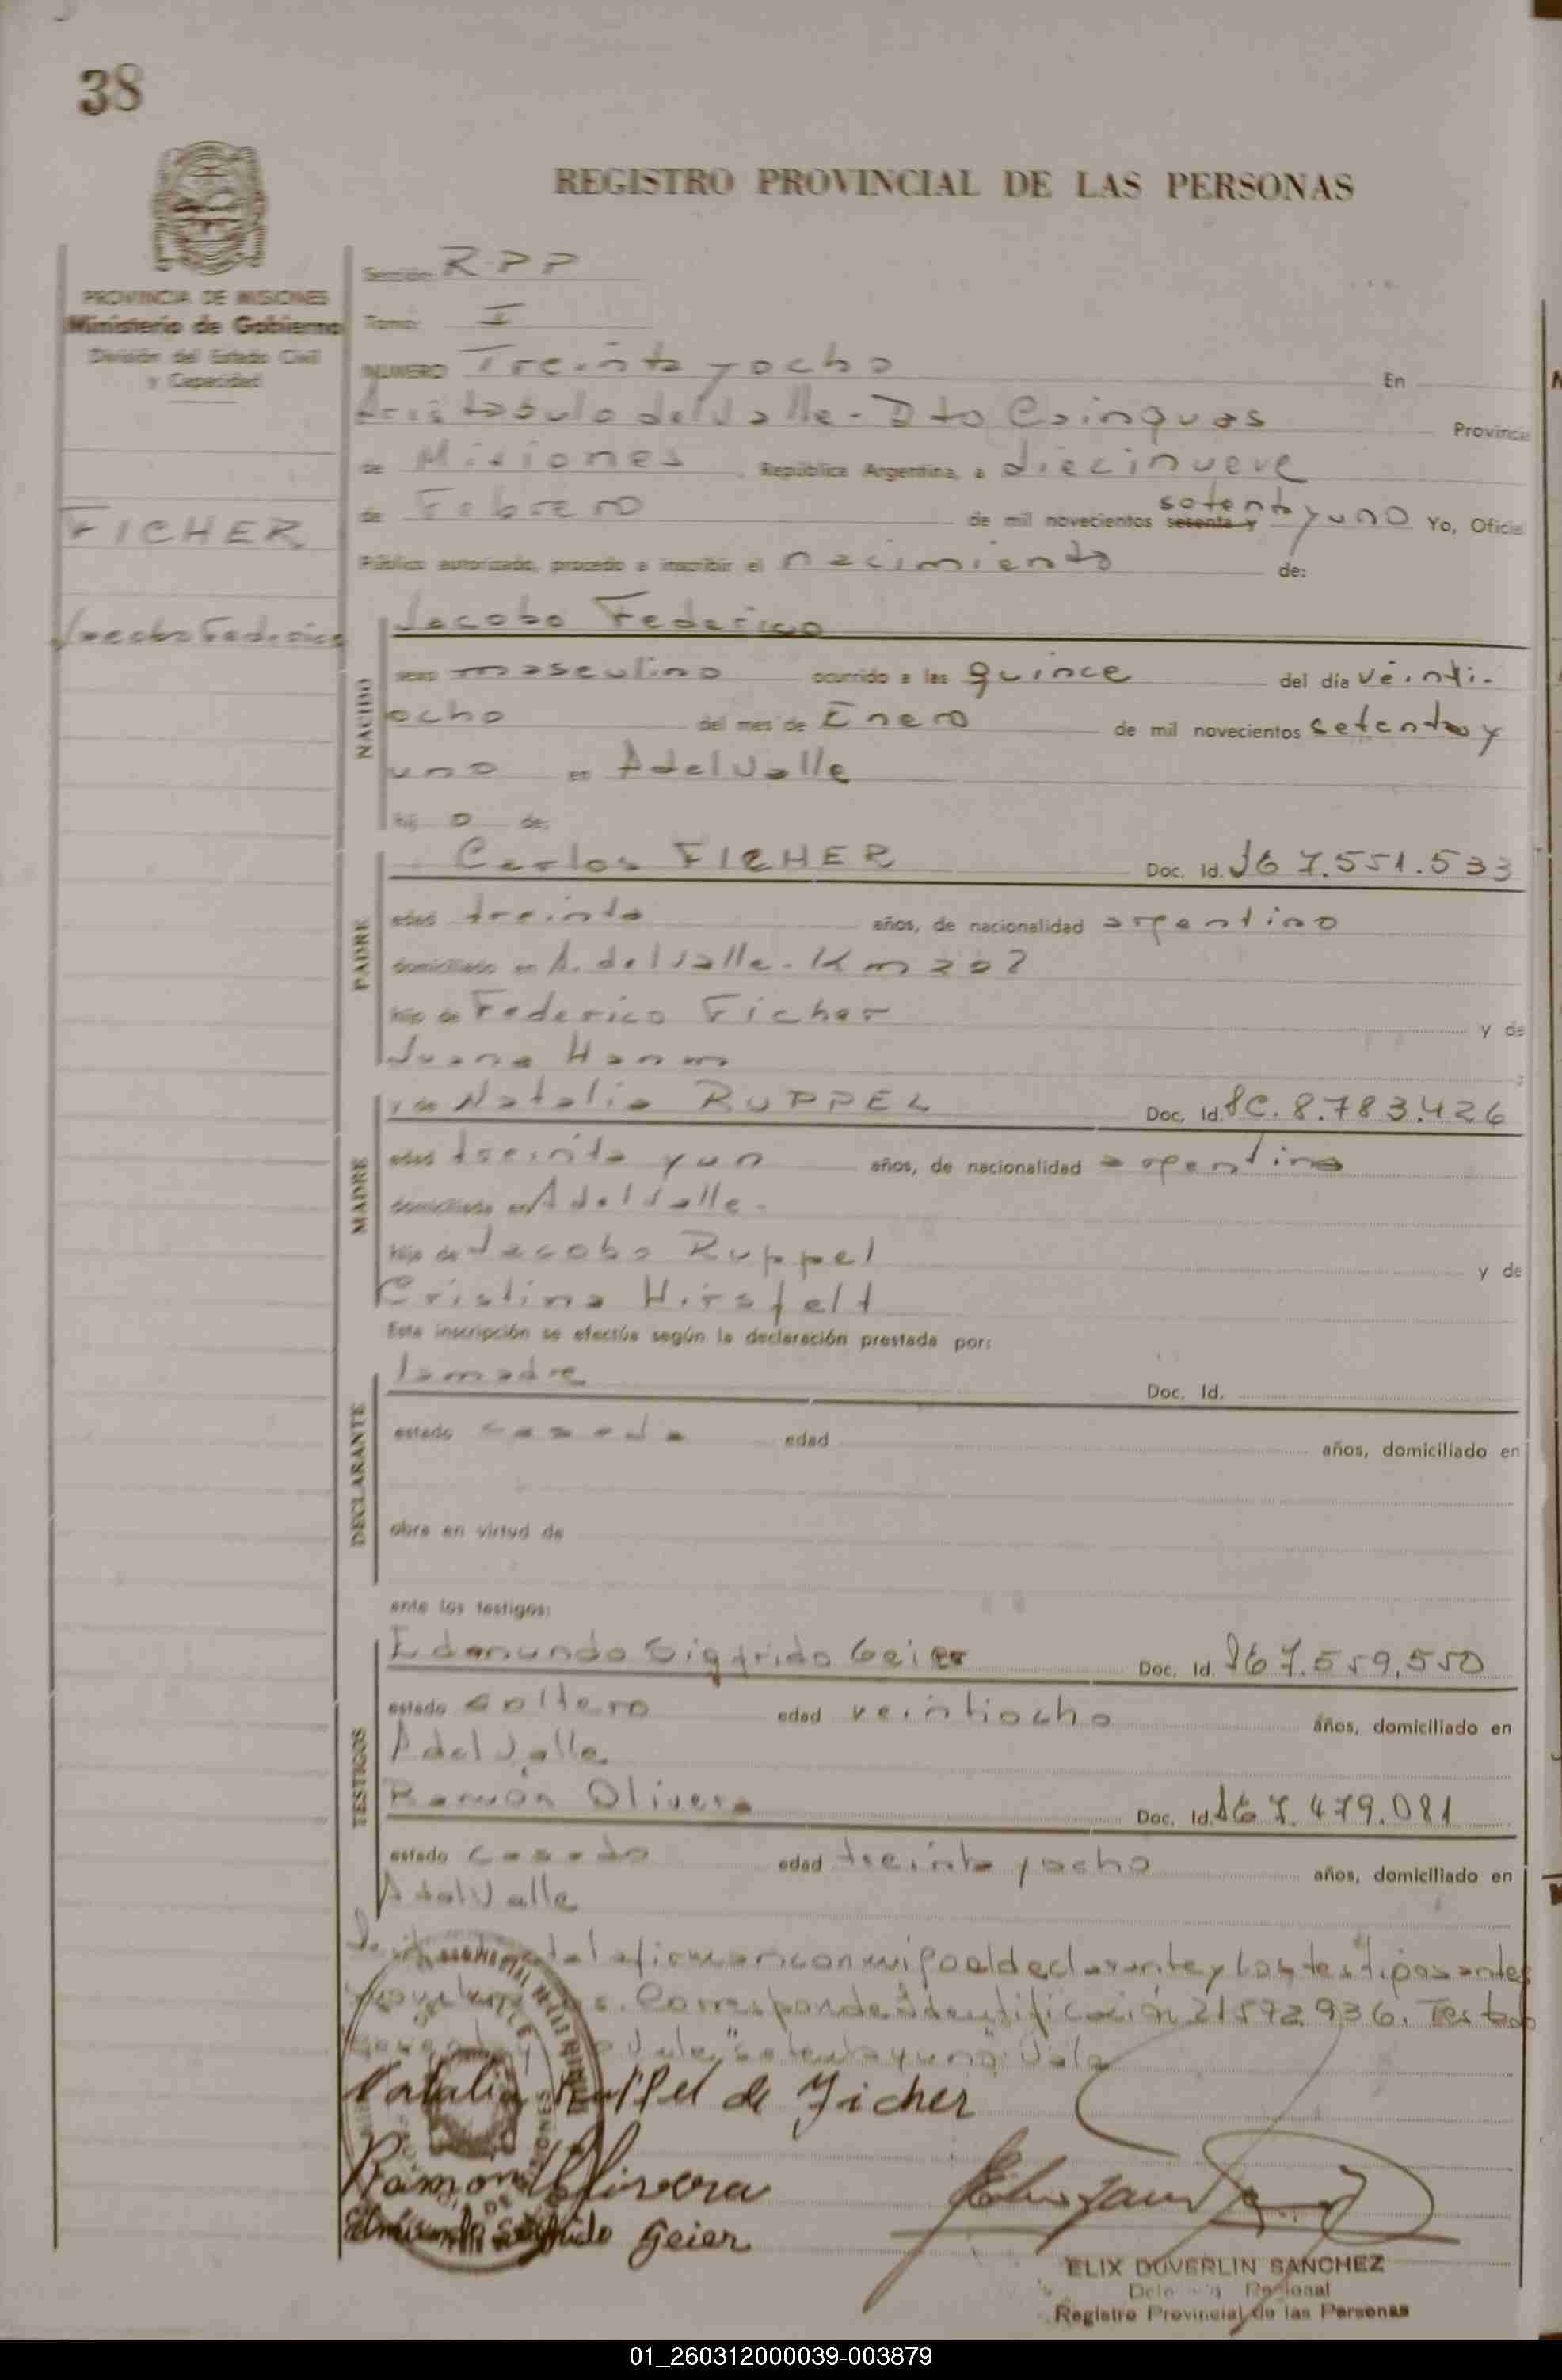 38
REGISTRO PROVINCIAL DE LAS PERSONAS
PROVINCIA DE MISIONES
Ministerio de Gobierno
División del Estado Civil
y Capacidad
FICHER
Jacobo Federico
Sección: RPP
Tomo: I
NUMERO Treinta y ocho En
Aristobulo del Valle - Dto Cainguas Provincia
de Misiones República Argentina, a diecinueve
de Febrero de mil novecientos sesenta y setenta y uno Yo, Oficial
Público autorizado, procedo a inscribir el nacimiento de:
NACIDO
Jacobo Federico
sexo masculino ocurrido a las quince del día veinti-
ocho del mes de Enero de mil novecientos setenta y
uno en A del Valle
hij o de:
PADRE
Carlos FICHER Doc. Id. 7.551.533
edad treinta años, de nacionalidad argentino
domiciliado en A. del Valle - Km 202
hijo de Federico Ficher y de
Juana Hanm
MADRE
y de Natalia RUPPEL Doc. Id. 8.783.426
edad treinta y un años, de nacionalidad argentina
domiciliada en A del Valle -
hija de Jacobo Ruppel y de
Cristina Hirsfelt
Esta inscripción se efectúa según la declaración prestada por:
DECLARANTE
la madre Doc. Id.
estado casada edad años, domiciliado en
obra en virtud de
ante los testigos:
TESTIGOS
Edmundo Sigfrido Geier Doc. Id. 7.559.550
estado soltero edad veintiocho años, domiciliado en
A del Valle
Ramón Olivera Doc. Id. 7.479.081
estado casado edad treinta y ocho años, domiciliado en
A del Valle
firman conmigo el declarante y los testigos antes
Corresponde Identificación 21572936. Testado
Vale "setenta y uno" Vale
Natalia Ruppel de Ficher
Ramon Olivera
Edmundo Sigfrido Geier
ELIX DUVERLIN SANCHEZ
Regional
Registro Provincial de las Personas
01_260312000039-003879